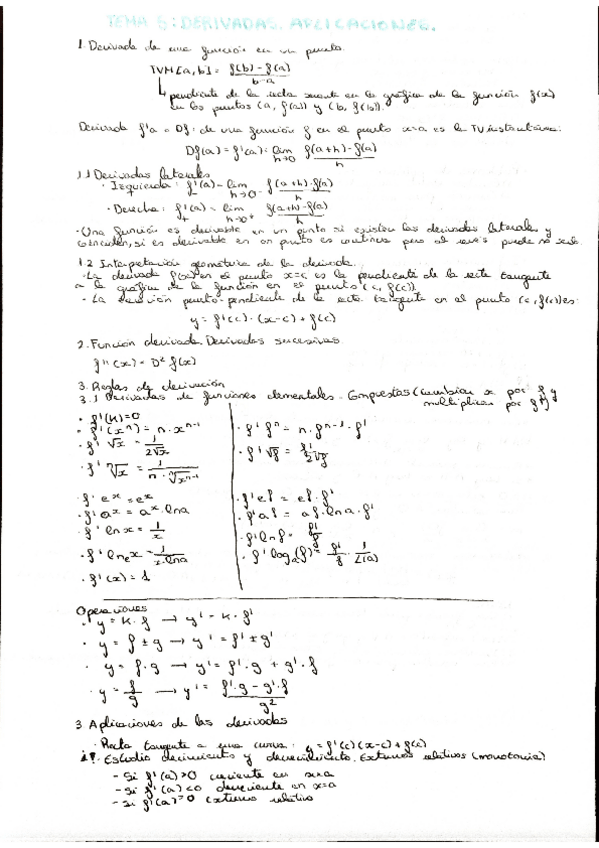 TEMA 5: DERIVADAS. APLICACIONES.
1. Derivada de una función en un punto.
TVM[a,b] = f(b) - f(a) / b-a
↳ pendiente de la recta secante en la gráfica de la función f(x)
en los puntos (a, f(a)) y (b, f(b)).
Derivada f'a o Df: de una función f en el punto x=a es la TV instantánea:
Df(a) = f'(a) = lim h→0 f(a+h) - f(a) / h
1.1 Derivadas laterales
· Izquierda: f'-(a) = lim h→0- f(a+h) - f(a) / h
· Derecha: f'+(a) = lim h→0+ f(a+h) - f(a) / h
· Una función es derivable en un punto si existen las derivadas laterales y
coinciden, si es derivable en un punto es continua pero al revés puede no serlo.
1.2 Interpretación geométrica de la derivada.
· La derivada f'(x) en el punto x=c es la pendiente de la recta tangente
a la gráfica de la función en el punto (c, f(c)).
· La ecuación punto-pendiente de la recta tangente en el punto (c, f(c)) es:
y = f'(c) · (x-c) + f(c)
2. Función derivada. Derivadas sucesivas
f''(x) = D² f(x)
3. Reglas de derivación
3.1 Derivadas de funciones elementales - Compuestas (cambian x por f y
multiplican por f')
· f'(K) = 0
· f'(xⁿ) = n · xⁿ⁻¹
· f' fⁿ = n · fⁿ⁻¹ · f'
· f' √x = 1 / 2√x
· f' √f = f' / 2√f
· f' ⁿ√x = 1 / n · ⁿ√xⁿ⁻¹
· f' eˣ = eˣ
· f' eᶠ = eᶠ · f'
· f' aˣ = aˣ · ln a
· f' aᶠ = aᶠ · ln a · f'
· f' ln x = 1 / x
· f' ln f = f' / f
· f' lnₑx = 1 / x · ln a
· f' logₐ(f) = f' / f · 1 / L(a)
· f'(x) = 1
Operaciones
· y = K · f → y' = K · f'
· y = f ± g → y' = f' ± g'
· y = f · g → y' = f' · g + g' · f
· y = f / g → y' = f' · g - g' · f / g²
3 Aplicaciones de las derivadas
· Recta tangente a una curva: y = f'(c) (x-c) + f(c)
· Estudio crecimiento y decrecimiento. Extremos relativos (monotonía)
- Si f'(a) > 0 creciente en x=a
- Si f'(a) < 0 decreciente en x=a
- Si f'(a) = 0 extremo relativo